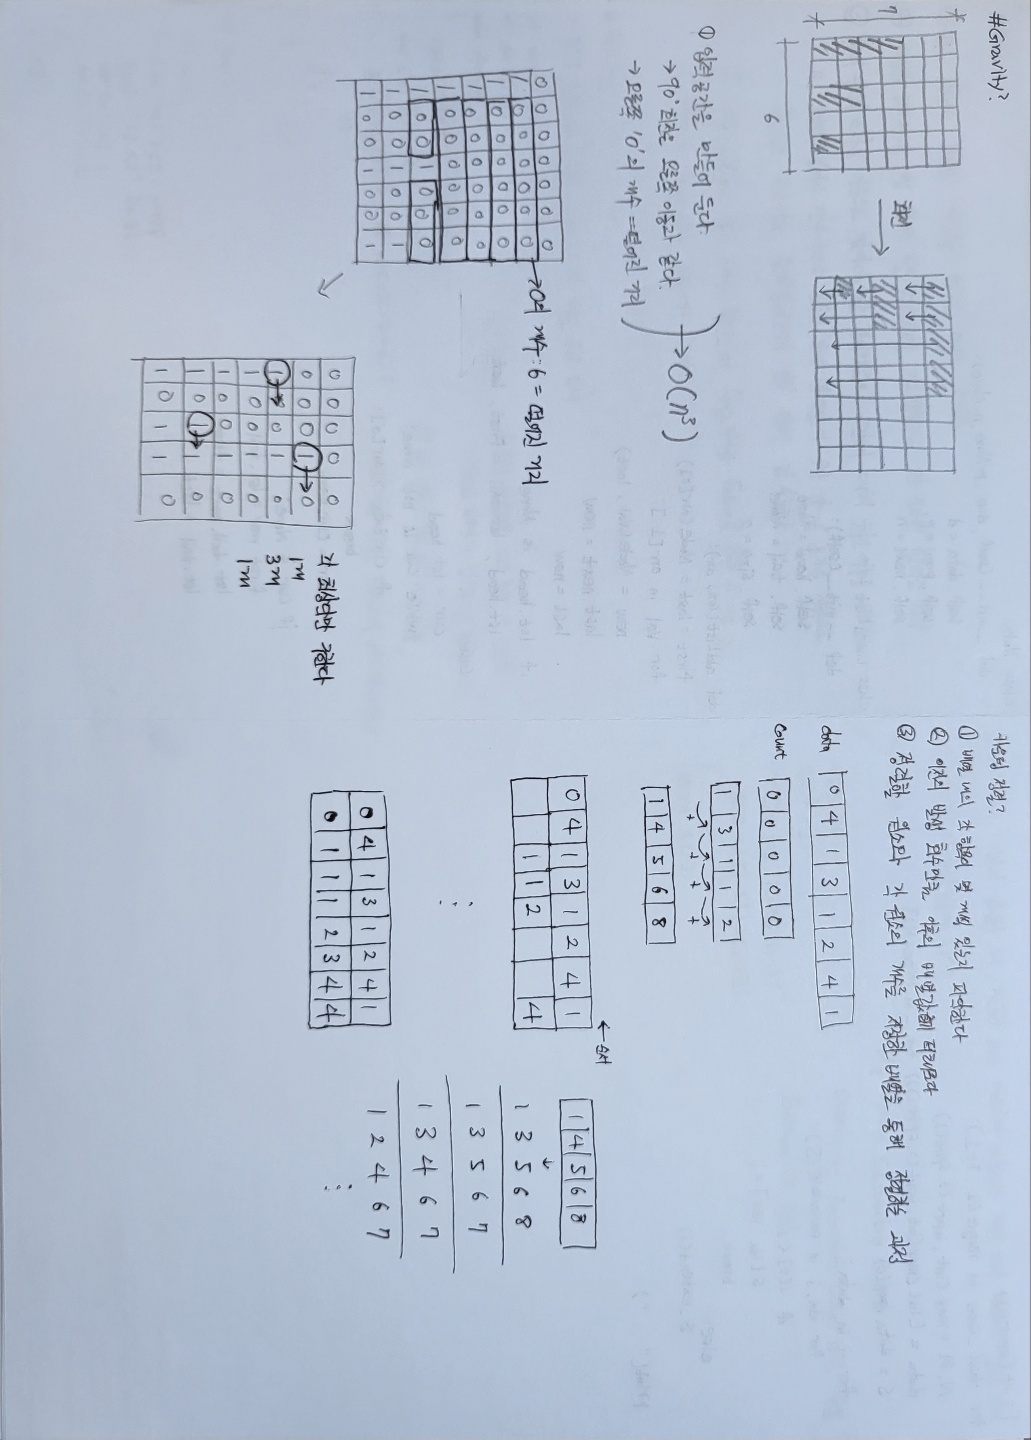 #Gravity?
7
6
회전
① 입력공간을 만들어 둔다.
→ 90° 회전은 오른쪽 이동과 같다.
→ 오른쪽 '0'의 개수 = 떨어진 거리
→ O(n³)
0 0 0 0 0 0 0
1 0 0 0 0 0 0
1 0 0 0 0 0 0
1 0 0 0 0 0 0
1 0 0 0 0 0 0
1 0 0 1 0 0 0
1 0 0 1 0 0 1
1 0 0 1 0 0 1
→ 0의 개수 : 6 = 떨어진 거리
0 0 0 0 0
0 0 0 1 → 0
1 → 0 1 0
1 0 0 1 0
1 0 0 1 0
1 0 1 → 1 0
1 0 1 1 0
각 최상단만 구한다
1개
3개
1개
카운팅 정렬?
① 배열 내의 각 항목이 몇 개씩 있는지 파악한다
② 이전의 발생 횟수만큼 이후의 배열값에 더해준다
③ 정렬할 원소와 각 원소의 개수를 저장한 배열을 통해 정렬하는 과정
data 0 4 1 3 1 2 4 1
count 0 0 0 0 0
1 3 1 1 2
+ + + +
1 4 5 6 8
← 순서
0 4 1 3 1 2 4 1
1 1 2 4
0 4 1 3 1 2 4 1
0 1 1 1 2 3 4 4
1 4 5 6 8
↓
1 3 5 6 8
1 3 5 6 7
1 3 4 6 7
1 2 4 6 7